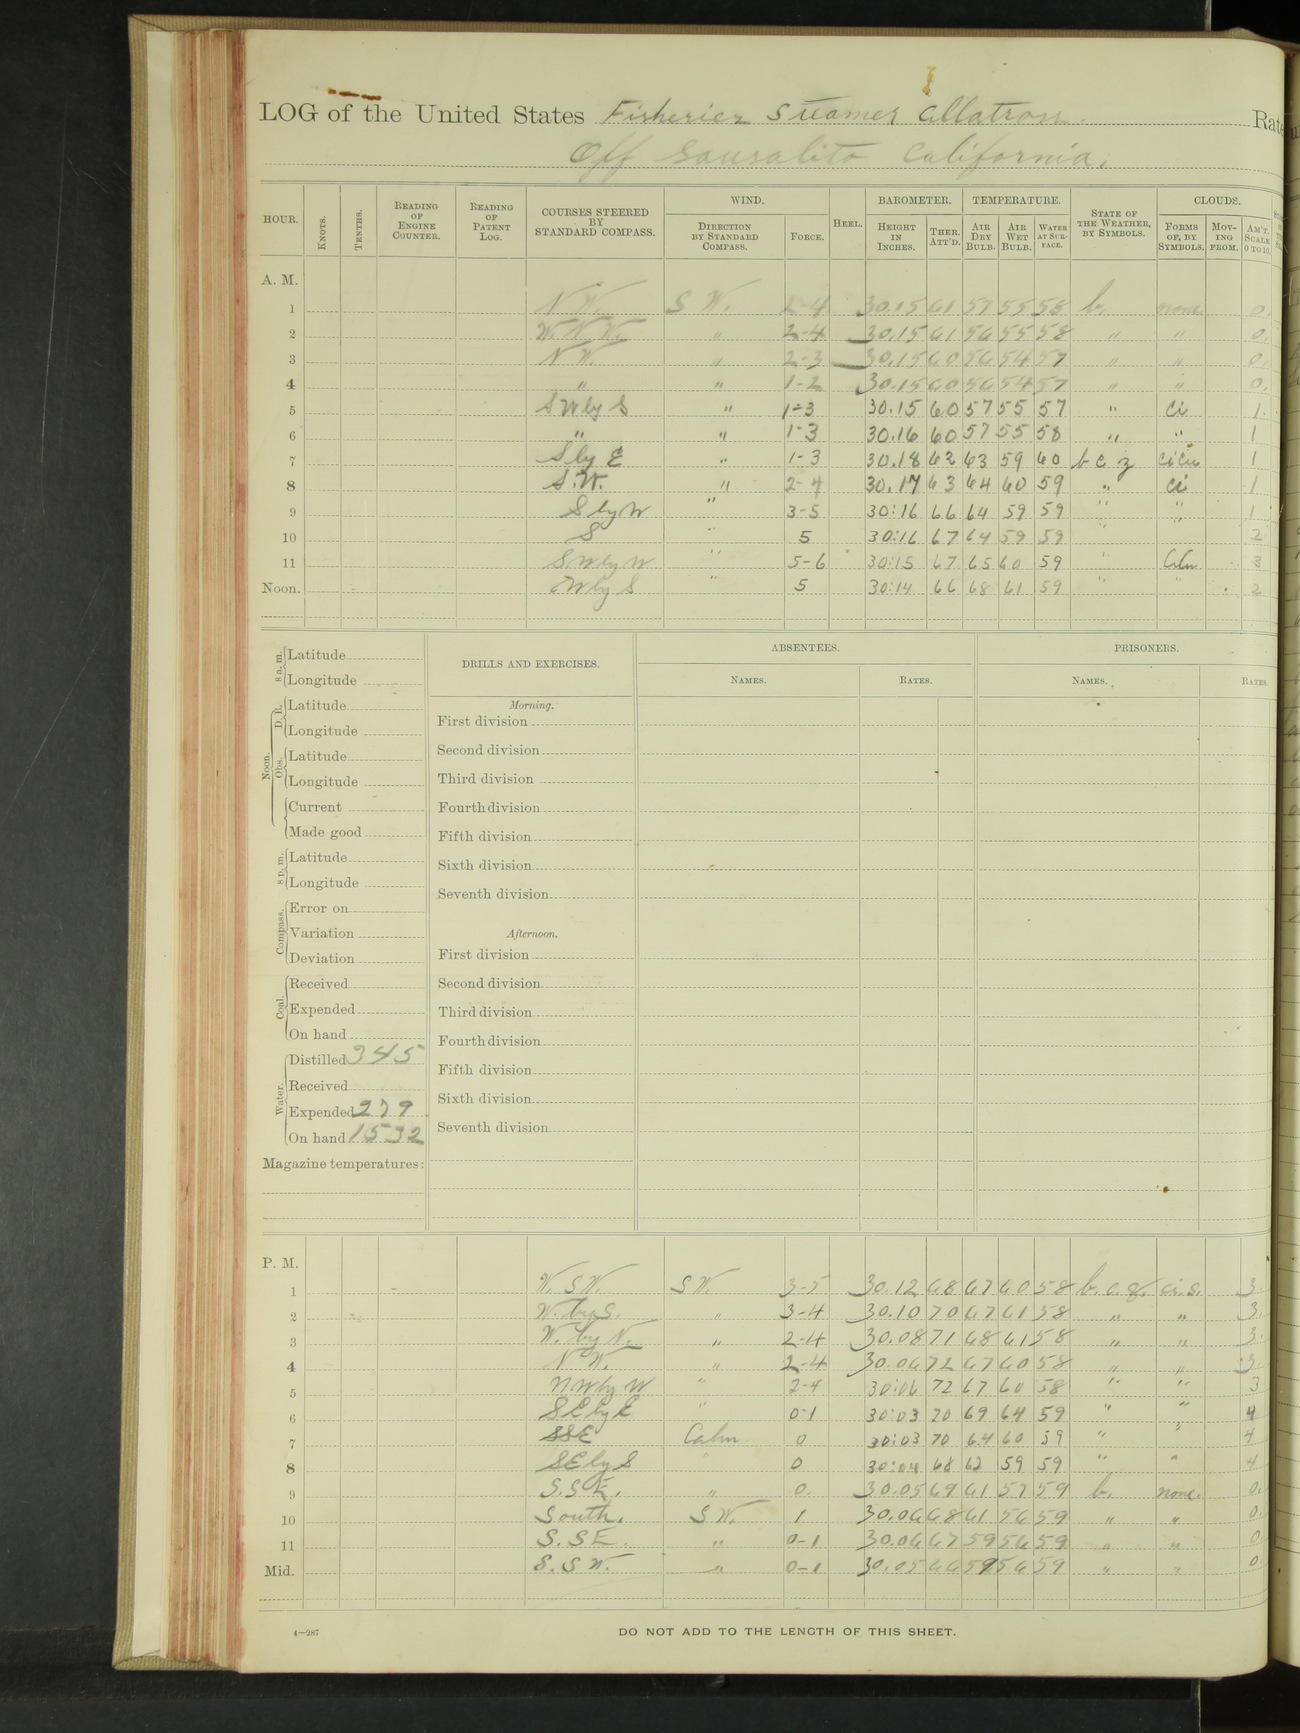 LOG of the United States Fisheries Steamer Albatross. Rate
Off Sausalito California.
HOUR. KNOTS. TENTHS. READING OF ENGINE COUNTER. READING OF PATENT LOG. COURSES STEERED BY STANDARD COMPASS. WIND. DIRECTION BY STANDARD COMPASS. FORCE. HEEL. BAROMETER. HEIGHT IN INCHES. THER. ATT'D. TEMPERATURE. AIR DRY BULB. AIR WET BULB. WATER AT SURFACE. STATE OF THE WEATHER, BY SYMBOLS. CLOUDS. FORMS OF, BY SYMBOLS. MOVING FROM. AM'T. SCALE 0 TO 10.
A. M.
1 N W. S W. 2-4 30.15 61 57 55 58 b. none 0.
2 W. N. W. " 2-4 30.15 61 56 55 58 " " 0.
3 N W. " 2-3 30.15 60 56 54 57 " " 0.
4 " " 1-2 30.15 60 56 54 57 " " 0.
5 S W by S " 1-3 30.15 60 57 55 57 " Ci 1.
6 " " 1-3 30.16 60 57 55 58 " " 1
7 S by E " 1-3 30.18 62 63 59 60 b c z Ci Cu 1
8 S. W. " 2-4 30.17 63 64 60 59 " Ci 1
9 S by W " 3-5 30:16 66 64 59 59 " " 1
10 S " 5 30:16 67 64 59 59 2
11 S W by W " 5-6 30:15 67 65 60 59 " 3
Noon. S W by S " 5 30:14 66 68 61 59 " " 2
8 a. m. Latitude
Longitude
Noon. D. R. Latitude
Longitude
Obs. Latitude
Longitude
Current
Made good
8 p. m. Latitude
Longitude
Compass. Error on
Variation
Deviation
Coal. Received
Expended
On hand
Water. Distilled 345
Received
Expended 279
On hand 1532
Magazine temperatures:
DRILLS AND EXERCISES.
Morning.
First division
Second division
Third division
Fourth division
Fifth division
Sixth division
Seventh division
Afternoon.
First division
Second division
Third division
Fourth division
Fifth division
Sixth division
Seventh division
ABSENTEES.
NAMES. RATES.
PRISONERS.
NAMES. RATES.
P. M.
1 W. S W. S W. 3-5 30.12 68 67 60 58 b. c. z. ci. s. 3.
2 W. by S. " 3-4 30.10 70 67 61 58 " " 3.
3 W. by N. " 2-4 30.08 71 68 61 58 " " 3.
4 N W. " 2-4 30.06 72 67 60 58 " " 3.
5 N W by W " 2-4 30:06 72 67 60 58 " " 3
6 S E by E " 0-1 30:03 70 69 64 59 " " 4
7 SSE Calm 0 30:03 70 64 60 59 " " 4
8 S E by S " 0 30:04 68 62 59 59 " " 4
9 S. S E. " 0. 30.05 69 61 57 59 b. none. 0.
10 South. S W. 1 30.06 68 61 56 59 " " 0.
11 S. S E. " 0-1 30.06 67 59 56 59 " " 0
Mid. S. S W. " 0-1 30.05 66 59 56 59 " " 0
4—287
DO NOT ADD TO THE LENGTH OF THIS SHEET.